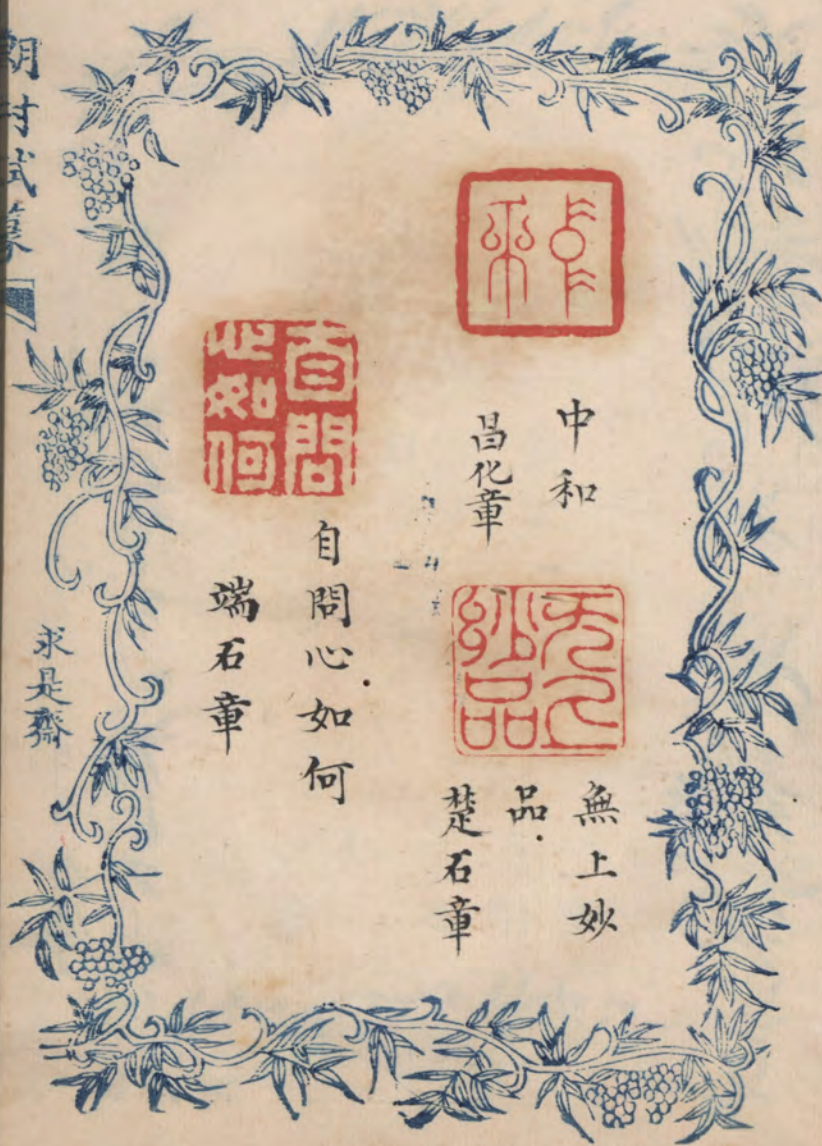 中和
昌化章
無上妙
品
楚石章
自問心如何
自問心如何
端石章
求是齋